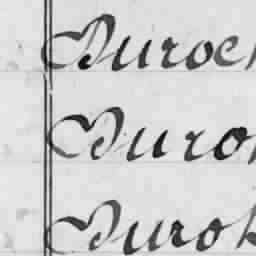 Duroc
Duro
Durok